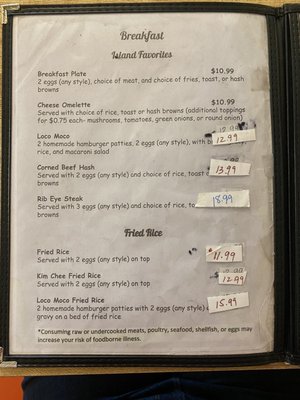 Breakfast
Island Favorites
Breakfast Plate $10.99
2 eggs (any style), choice of meat, and choice of fries, toast, or hash
browns
Cheese Omelette $10.99
Served with choice of rice, toast or hash browns (additional toppings
for $0.75 each- mushrooms, tomatoes, green onions, or round onion)
Loco Moco 12.99
2 homemade hamburger patties, 2 eggs (any style), with
rice, and macaroni salad
Corned Beef Hash 13.99
Served with 2 eggs (any style) and choice of rice, toast
browns
Rib Eye Steak 18.99
Served with 3 eggs (any style) and choice of rice,
browns
Fried Rice
Fried Rice $11.99
Served with 2 eggs (any style) on top
Kim Chee Fried Rice 12.99
Served with 2 eggs (any style) on top
Loco Moco Fried Rice 15.99
2 homemade hamburger patties with 2 eggs (any style)
gravy on a bed of fried rice
*Consuming raw or undercooked meats, poultry, seafood, shellfish, or eggs may
increase your risk of foodborne illness.